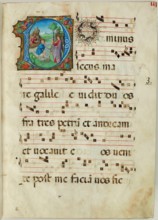 minus
secus ma
re galilee vidit du os
fra tres petrum et andream
et vocavit e os ven
re post me faciam vos fie